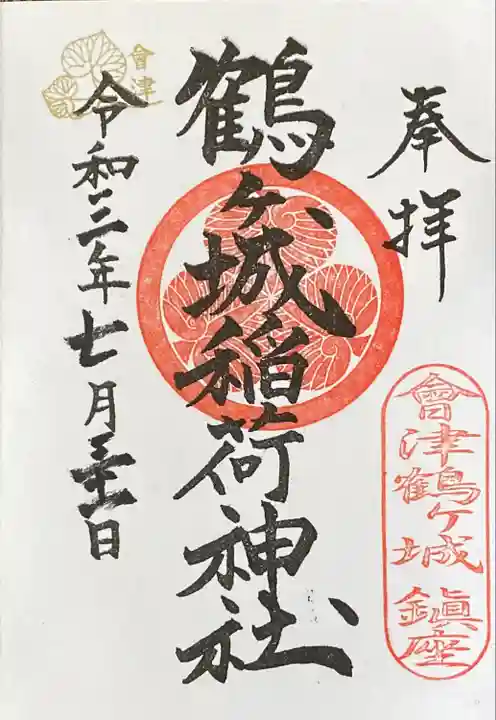 奉拝
會津鶴ヶ城鎮座
鶴ヶ城稲荷神社
令和三年七月三十一日
會津